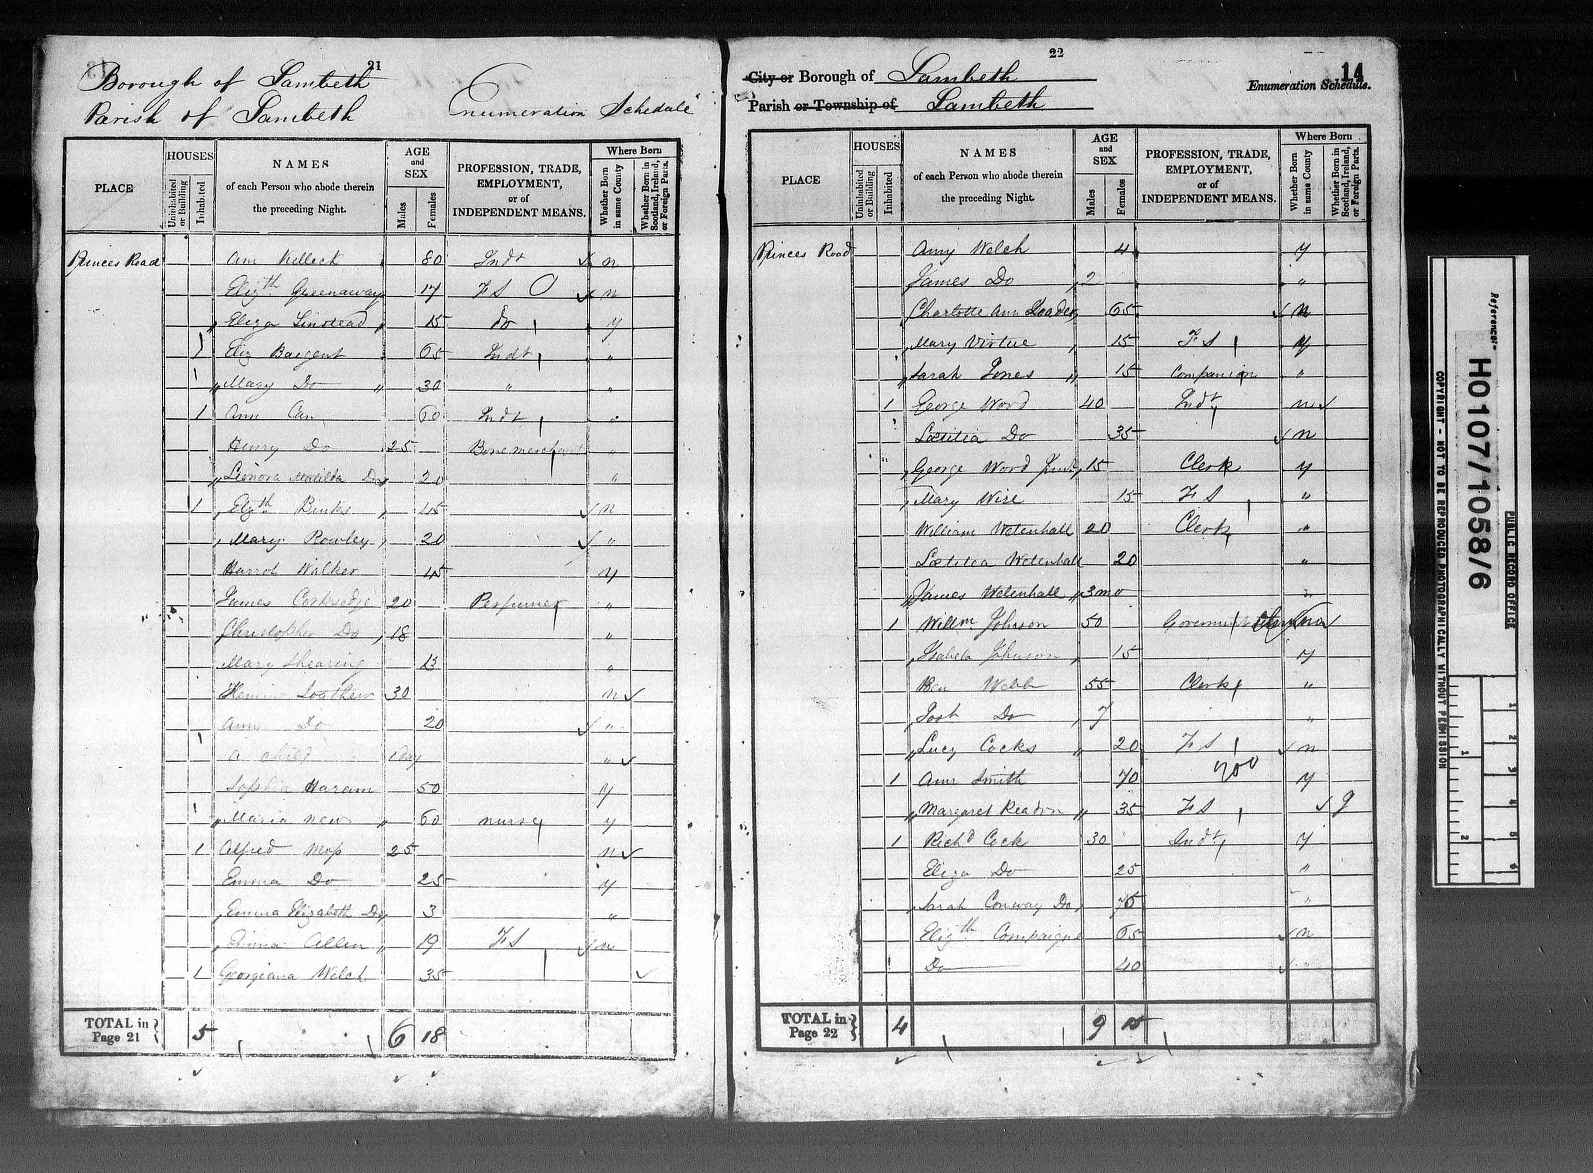 21
Borough of Lambeth
Parish of Lambeth
Enumeration Schedule
PLACE
HOUSES
Uninhabited or Building
Inhabited
NAMES
of each Person who abode therein
the preceding Night.
AGE
and
SEX
Males
Females
PROFESSION, TRADE,
EMPLOYMENT,
or of
INDEPENDENT MEANS.
Where Born
Whether Born in same County
Whether Born in Scotland, Ireland, or Foreign Parts.
Princes Road Ann 80 Indt n
Elizth Greenaway 17 F S n
Eliza Linstead 15 do y
Eliz Bargent 65 Indt "
Mary Do 30 " "
1 Ann 60 Indt "
Henry Do 25 Bone merchant "
Leonora Matilda Do 20 "
1 Elizth Binks 45 n
Mary Rowley 20 "
Walker 45 y
James 20 Perfumer "
Christopher Do 18 "
Mary Shearing 13 "
30 n
Ann Do 20 "
A child 1 day "
Sophia 50 y
Maria New 60 nurse y
1 Alfred Mop 25 n
Emma Do 25 y
Emma Elizabeth Do 3 "
Allen 19 F S n
1 Georgiana Welch 35
TOTAL in
Page 21
5 6 18
22
14
City or Borough of Lambeth
Parish or Township of Lambeth
Enumeration Schedule.
PLACE
HOUSES
Uninhabited or Building
Inhabited
NAMES
of each Person who abode therein
the preceding Night.
AGE
and
SEX
Males
Females
PROFESSION, TRADE,
EMPLOYMENT,
or of
INDEPENDENT MEANS.
Where Born
Whether Born in same County
Whether Born in Scotland, Ireland, or Foreign Parts.
Princes Road Amy Welch 4 y
James Do 2 "
Charlotte Ann Loader 65 n
Mary Virtue 15 F S y
Sarah Jones 15 Companion "
1 George Word 40 Indt n
Lætitia Do 35 n
George Word Junr 15 Clerk y
Mary Wire 15 F S "
William Wetenhall 20 Clerk "
Lætitea Wetenhall 20 "
James Wetenhall 3 mo "
1 Willm Johnson 50
Isabela Johnson 15 y
Ben Webb 55 Clerk "
Josh Do 7 "
Lucy Cocks 20 F S n
700
1 Ann Smith 70 y
Margaret Reardon 35 F S 9
1 Richd Cock 30 Indt y
Eliza Do 25 "
Sarah Conway Do 75 "
Elizth Compaigne 65 n
Do 40
TOTAL in
Page 22
4 9 15
Reference:-
HO107/1058/6
PUBLIC RECORD OFFICE
COPYRIGHT - NOT TO BE REPRODUCED PHOTOGRAPHICALLY WITHOUT PERMISSION
1
2
1
2
3
4
5
6